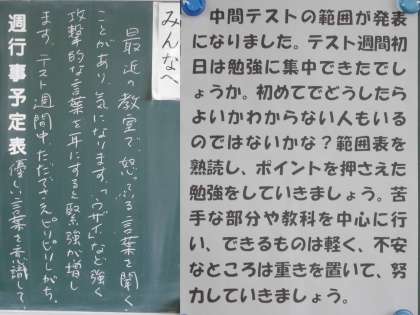 みんなへ
最近の教室で、怒、ふる言葉を聞く
ことがあり、気になります。「ウザイ」など強く
攻撃的な言葉を耳にすると緊張が増し
ます。テスト週間中、ただでさえピリピリしがち。
優しい言葉を意識して
週行事予定表
中間テストの範囲が発表
になりました。テスト週間初
日は勉強に集中できたでし
ょうか。初めてでどうしたら
よいかわからない人もいる
のではないかな？範囲表を
熟読し、ポイントを押さえた
勉強をしていきましょう。苦
手な部分や教科を中心に行
い、できるものは軽く、不安
なところは重きを置いて、努
力していきましょう。